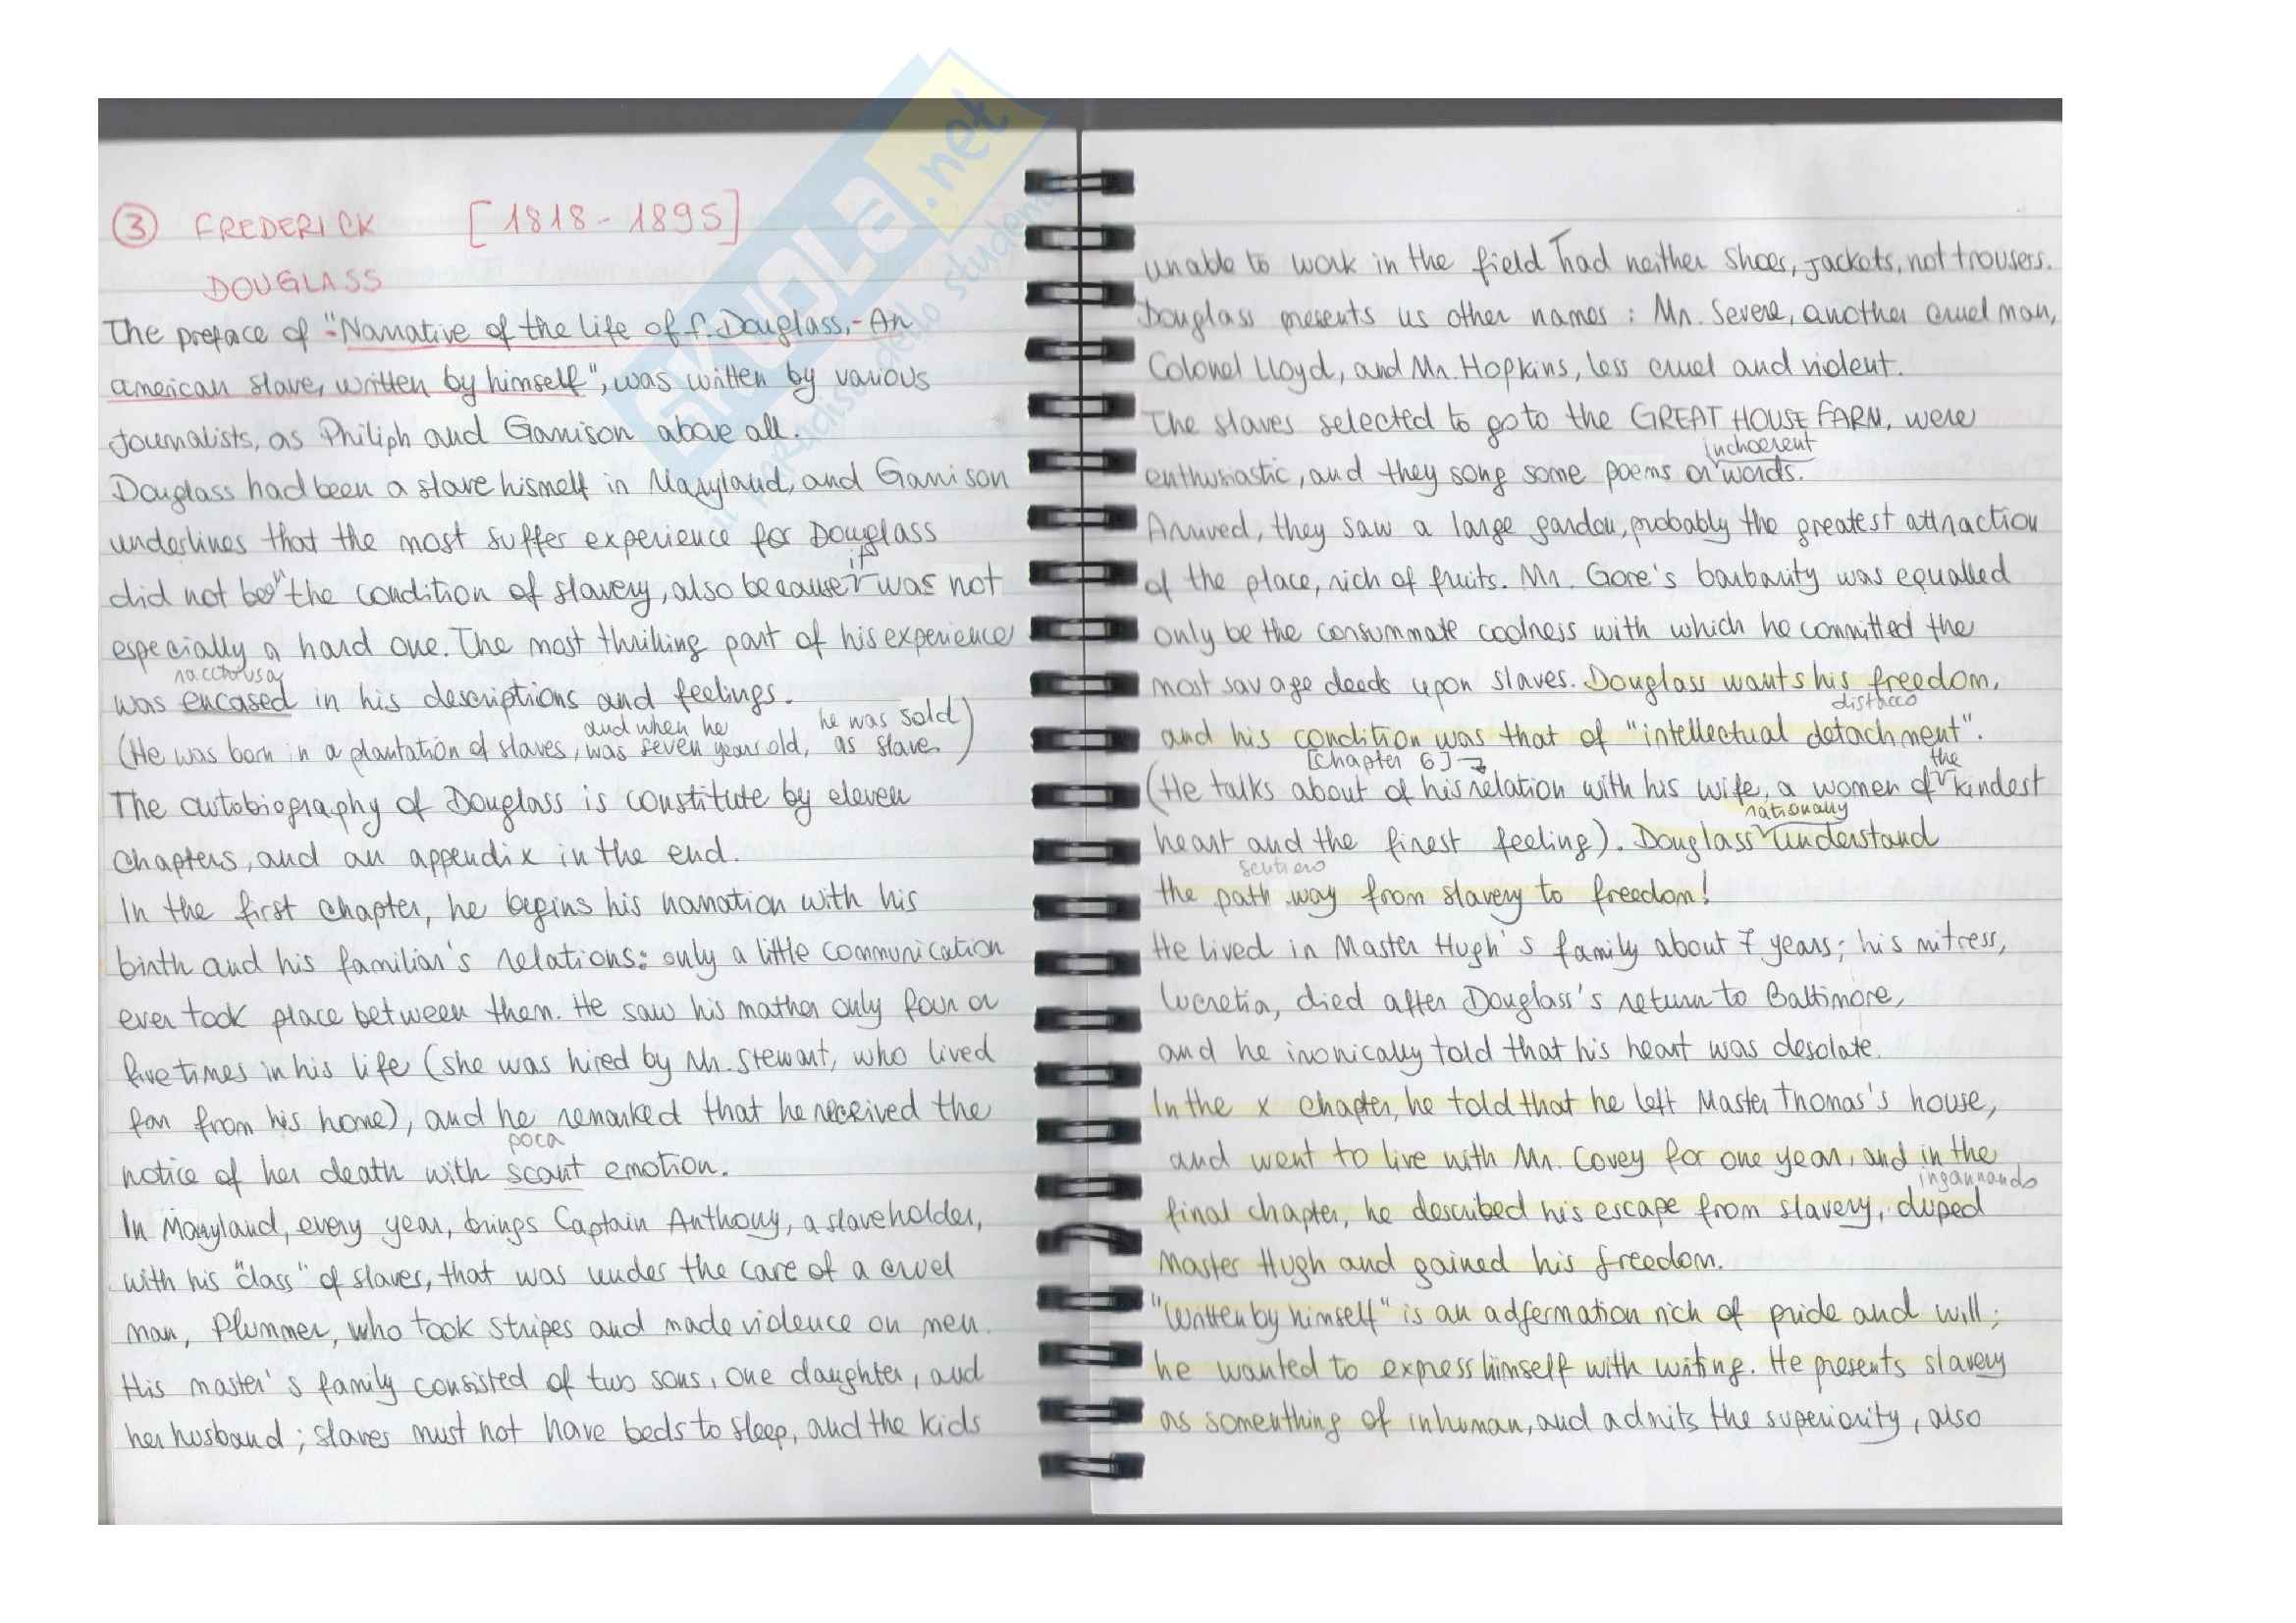 ③ FREDERICK [1818-1895]
DOUGLASS
The preface of "Narrative of the life of f. Douglass, - An
american slave, written by himself", was written by various
journalists, as Philiph and Garrison above all.
Douglass had been a slave hismelf in Maryland, and Garrison
underlines that the most suffer experience for Douglass
it
did not been the condition of slavery, also because was not
especially a hard one. The most thrilling part of his experience
racchiusa
was encased in his descriptions and feelings.
and when he he was sold
(He was born in a plantation of slaves, was seven years old, as slave)
The autobiography of Douglass is constitute by eleven
chapters, and an appendix in the end.
In the first chapter, he begins his narration with his
birth and his familiar's relations: only a little communication
ever took place between them. He saw his mother only four or
five times in his life (she was hired by Mr. Stewart, who lived
far from his home), and he remarked that he received the
poca
notice of her death with scant emotion.
In Maryland, every year, brings Captain Anthony, a slaveholder,
with his "class" of slaves, that was under the care of a cruel
man, Plummer, who took stripes and made violence on men.
His master's family consisted of two sons, one daughter, and
her husband; slaves must not have beds to sleep, and the kids
unable to work in the field had neither shoes, jackets, not trousers.
Douglass presents us other names: Mr. Severe, another cruel man,
Colonel Lloyd, and Mr. Hopkins, less cruel and violent.
The slaves selected to go to the GREAT HOUSE FARM, were
inchoerent
enthusiastic, and they song some poems or words.
Arrived, they saw a large garden, probably the greatest attraction
of the place, rich of fruits. Mr. Gore's barbarity was equalled
only be the consummate coolness with which he committed the
most savage deeds upon slaves. Douglass wants his freedom,
distacco
and his condition was that of "intellectual detachment".
[Chapter 6] → the
(He talks about of his relation with his wife, a women of kindest
rationally
heart and the finest feeling). Douglass understand
sentiero
the path way from slavery to freedom!
He lived in Master Hugh's family about 7 years; his mitress,
Lucretia, died after Douglass's return to Baltimore,
and he ironically told that his heart was desolate.
In the X chapter, he told that he left Master Thomas's house,
and went to live with Mr. Covey for one year, and in the
ingannando
final chapter, he described his escape from slavery, duped
Master Hugh and gained his freedom.
"Written by himself" is an adfermation rich of pride and will;
he wanted to express himself with writing. He presents slavery
as someuthing of inhuman, and admits the superiority, also
SKUOLA.net
il paradiso dello studente